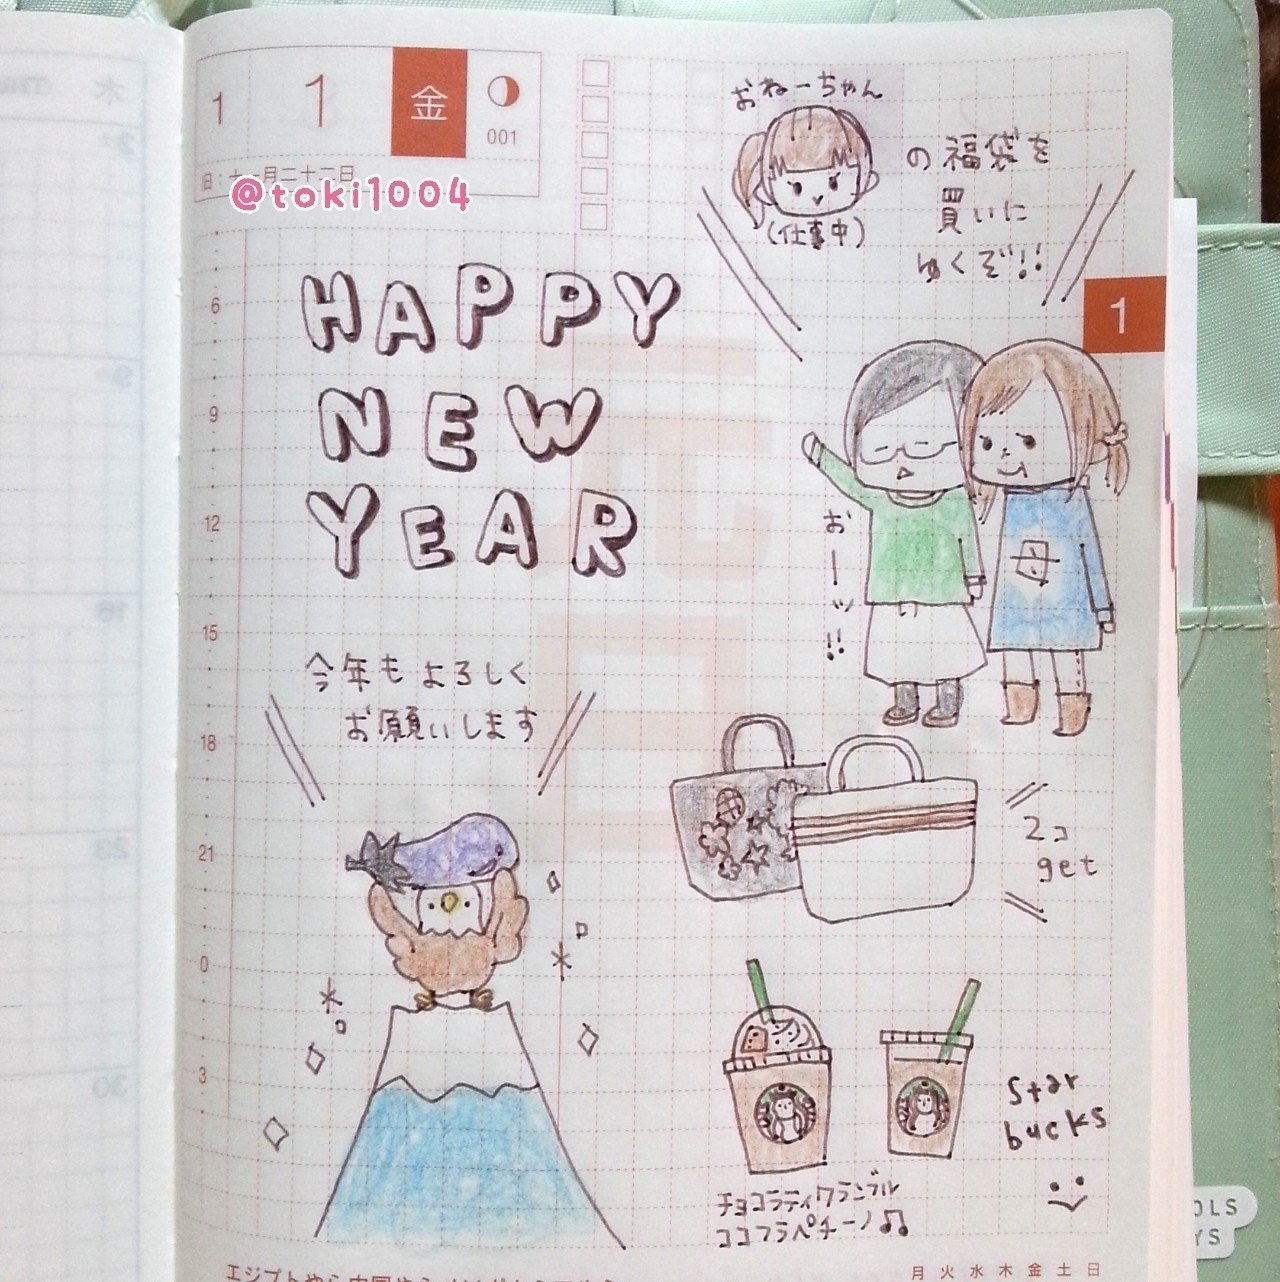 1 1 金 001
旧:十一月二十二日
@toki1004
HAPPY
NEW
YEAR
今年もよろしく
お願いします
おねーちゃん
(仕事中)
の福袋を
買いに
ゆくぞ!!
1
母
おーッ!!
2コ
get
Star
bucks
チョコラティクランブル
ココフラペチーノ♫
6
9
12
15
18
21
0
3
月 火 水 木 金 土 日